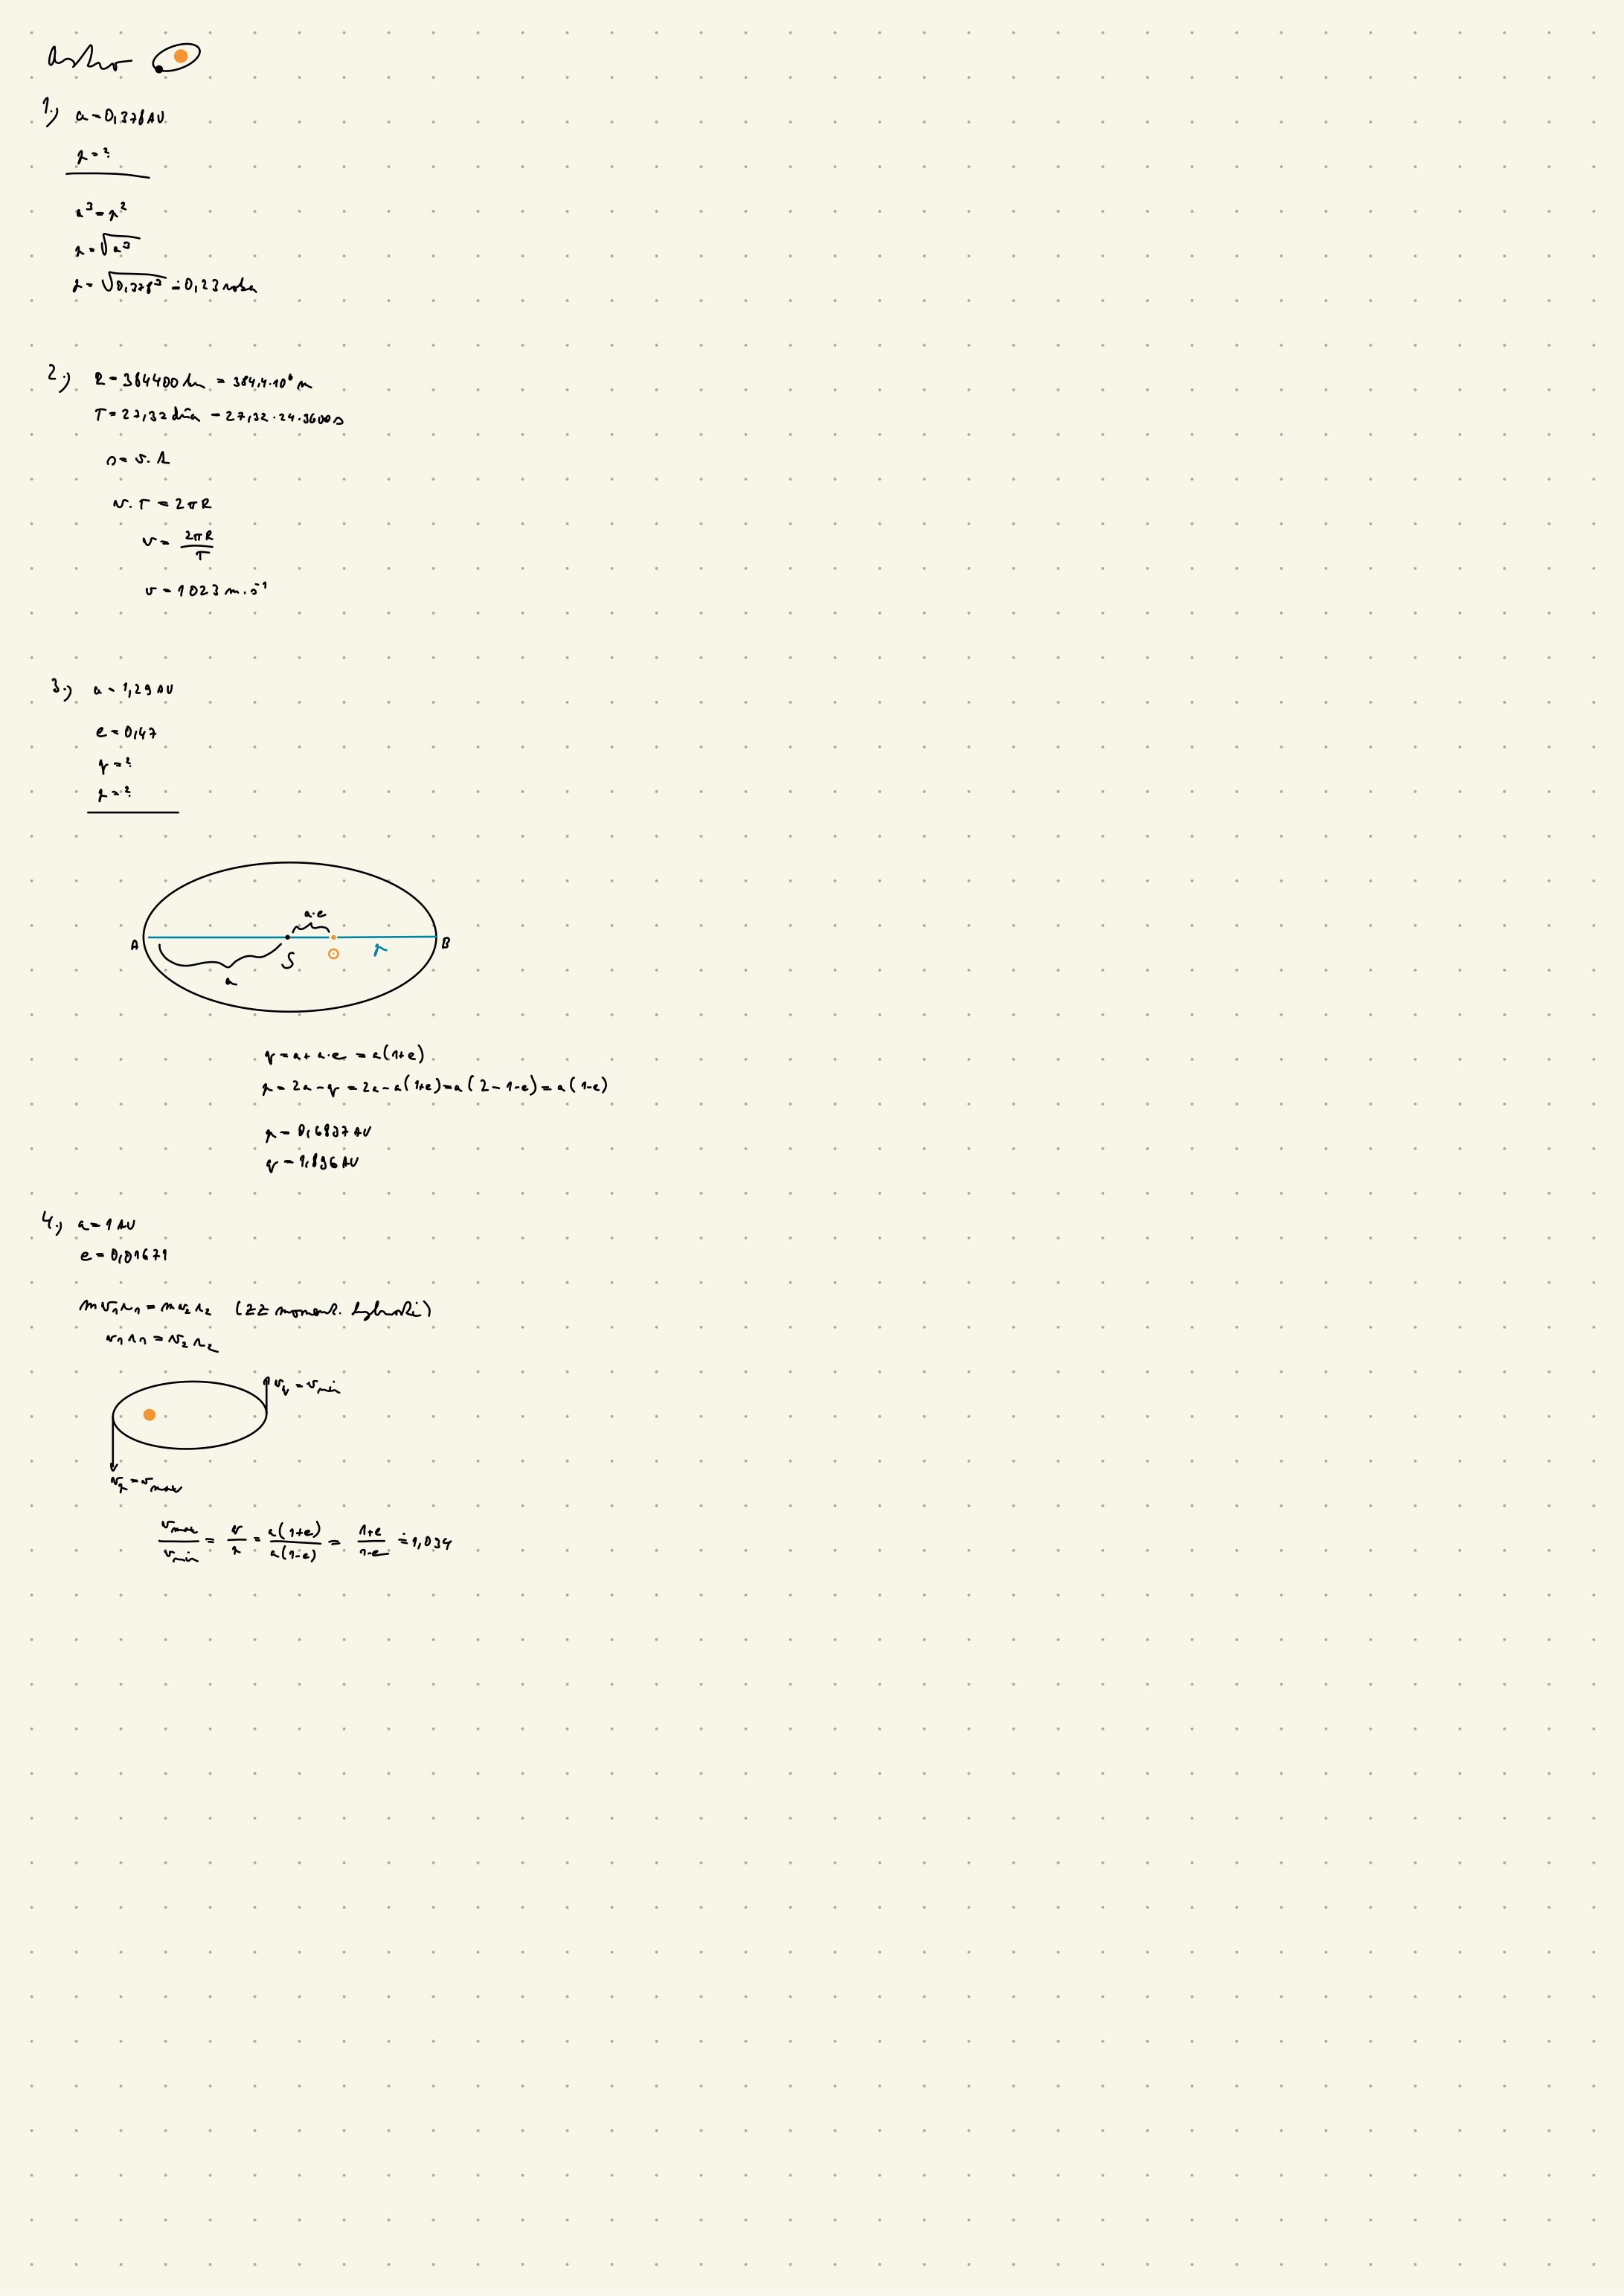 Astro
1.) a = 0,378 AU
p = ?
a³ = p²
p = √a³
p = √0,378³ ≐ 0,23 roka
2.) R = 384400 km = 384,4·10⁶ m
T = 27,32 dňa = 27,32·24·3600 s
s = v·t
v·T = 2πR
v = 2πR/T
v = 1023 m·s⁻¹
3.) a = 1,29 AU
e = 0,47
q = ?
p = ?
a·e
A
B
S
p
a
q = a + a·e = a(1+e)
p = 2a - q = 2a - a(1+e) = a(2-1-e) = a(1-e)
p = 0,6837 AU
q = 1,896 AU
4.) a = 1 AU
e = 0,01671
m v₁ r₁ = m v₂ r₂ (ZZ moment. hybnosti)
v₁ r₁ = v₂ r₂
v_q = v_min
v_p = v_max
v_max/v_min = q/p = a(1+e)/a(1-e) = 1+e/1-e ≐ 1,034